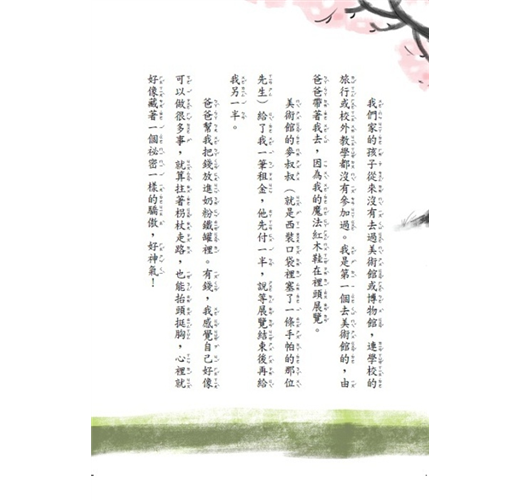 我們家的孩子從來沒有去過美術館或博物館，連學校的
旅行或校外教學都沒有參加過。我是第一個去美術館的，由
爸爸帶著我去，因為我的魔法紅木鞋在裡頭展覽。
美術館的麥叔叔（就是西裝口袋裡塞了一條手帕的那位
先生）給了我一筆租金，他先付一半，說等展覽結束後再給
我另一半。
爸爸幫我把錢放進奶粉鐵罐裡。有錢，我感覺自己好像
可以做很多事，就算拄著拐杖走路，也能抬頭挺胸，心裡就
好像藏著一個祕密一樣的驕傲，好神氣！